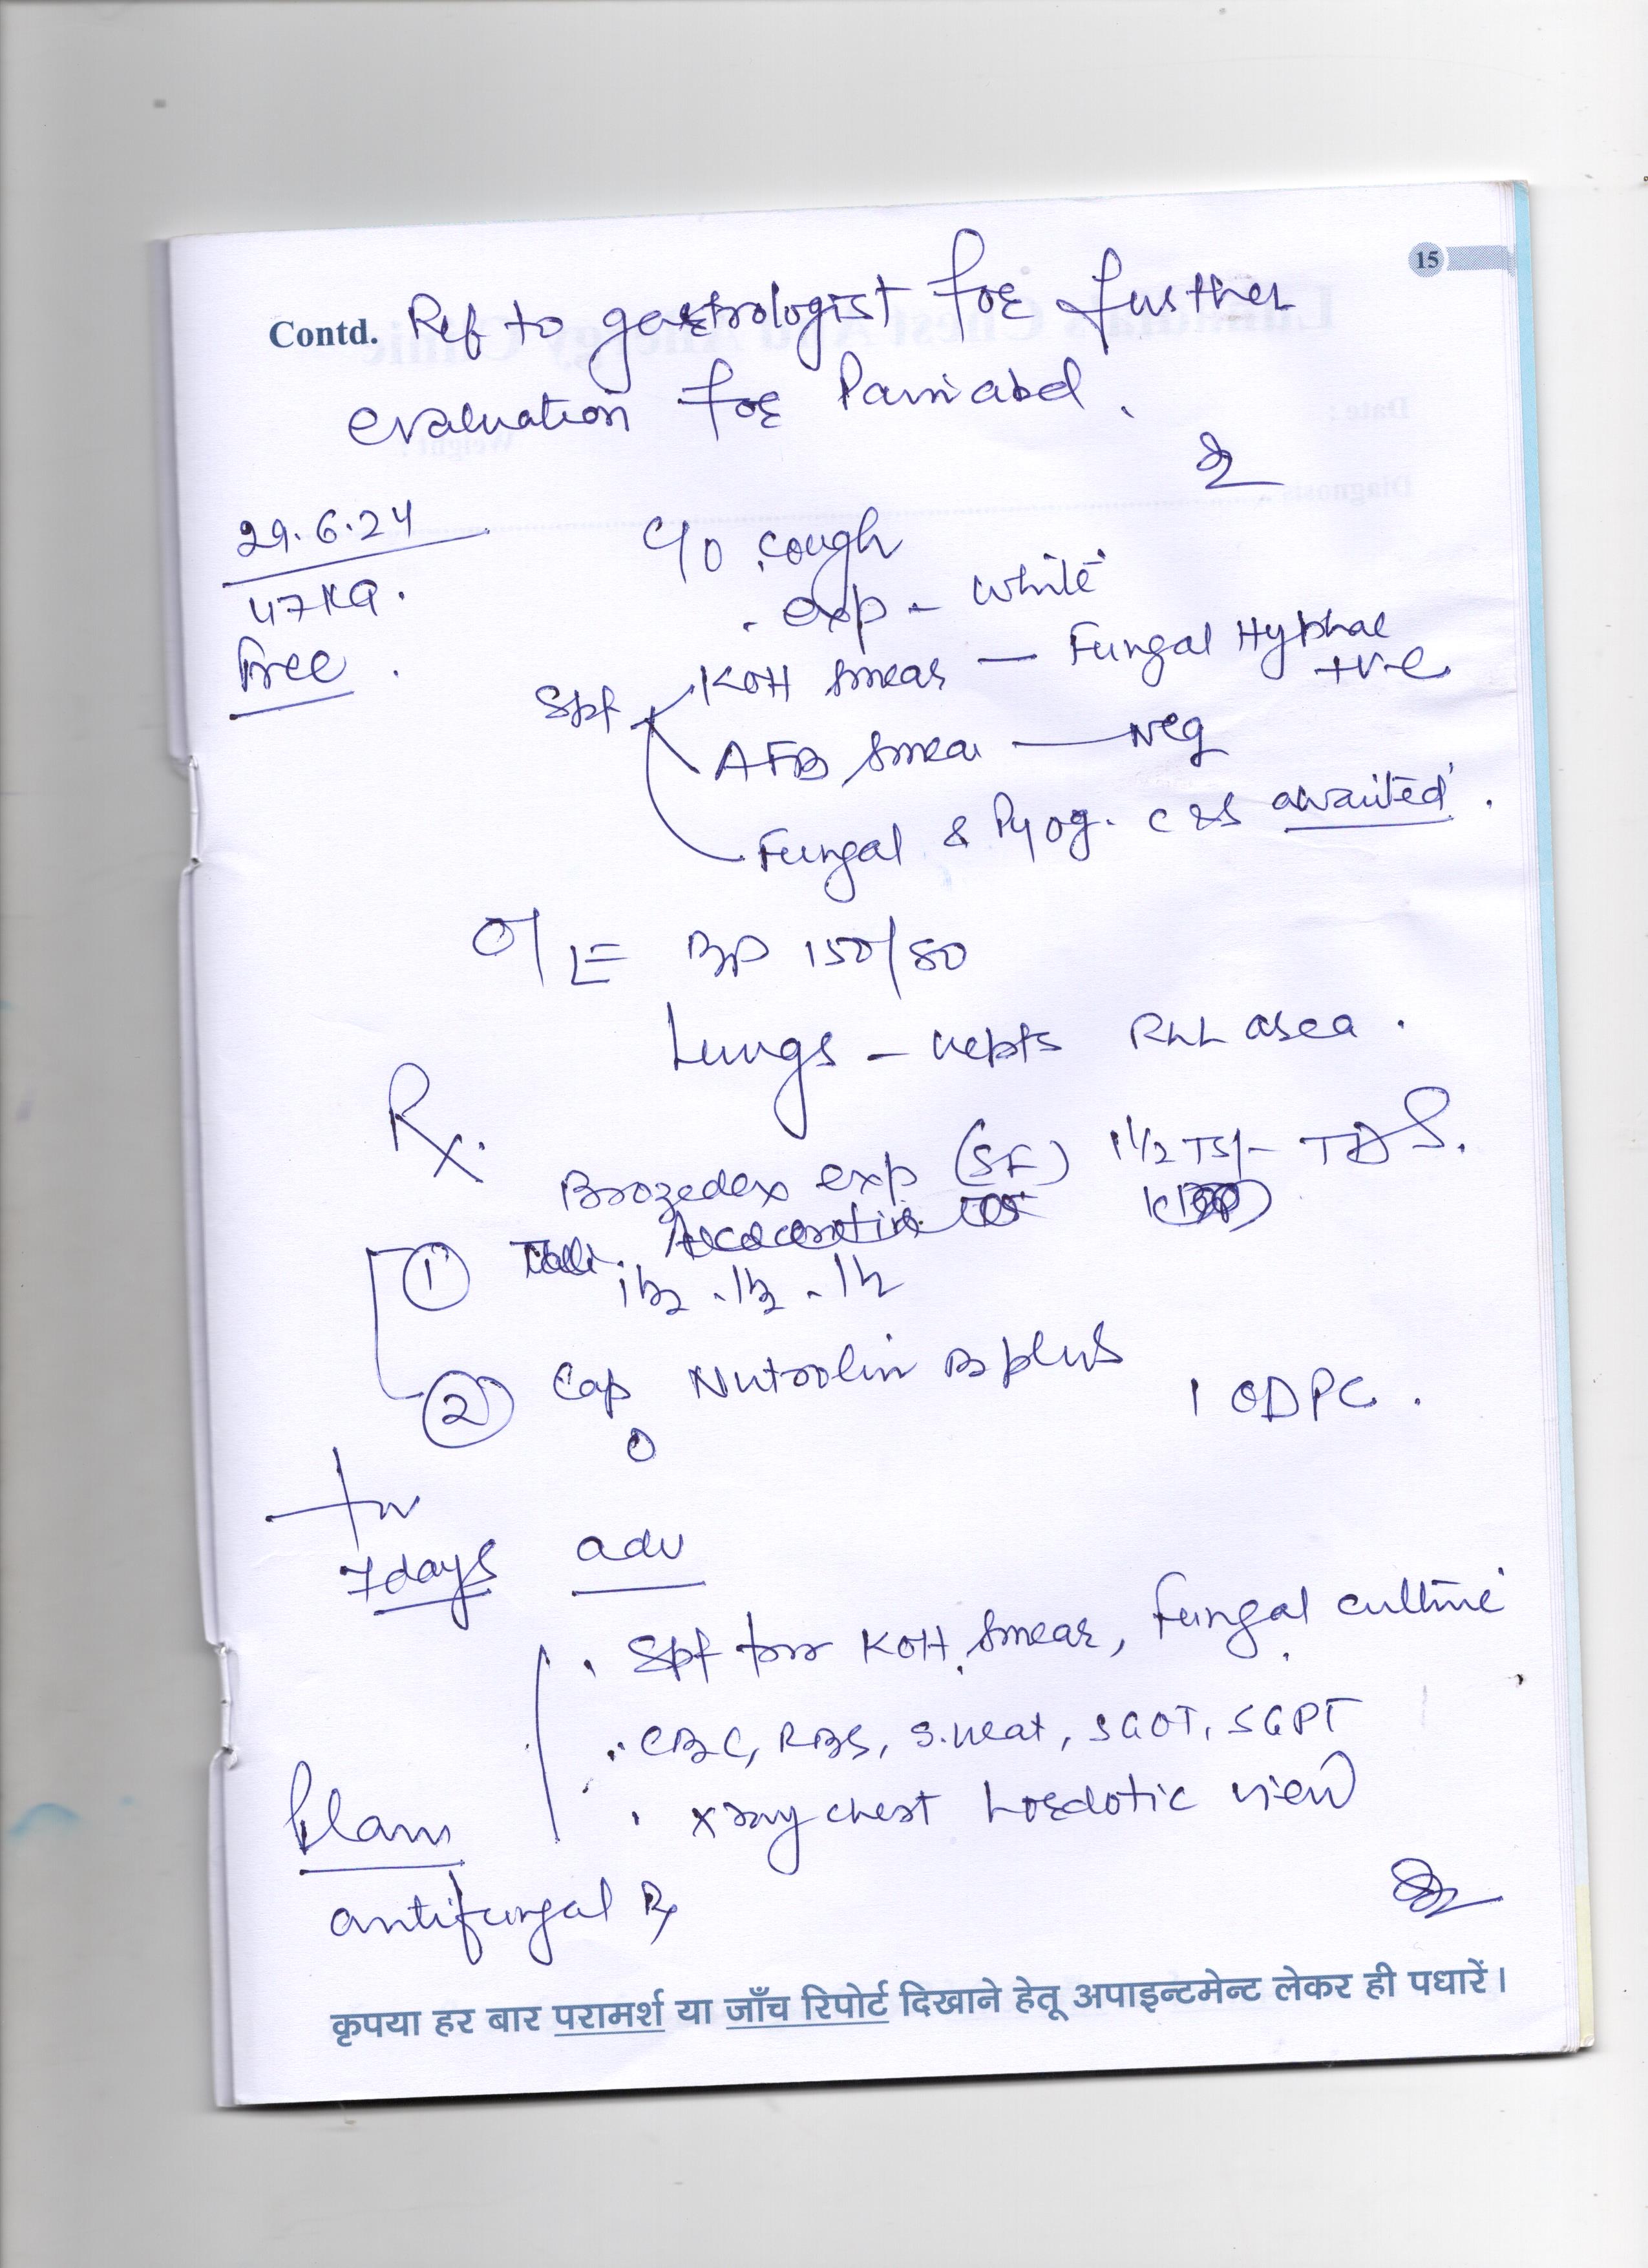 15
Contd. Ref to gastrologist for further
evaluation for Pain abd.
29.6.24
47 KG.
Free.
C/O cough
exp - white
Spt KOH smear — Fungal Hyphae
+ve
AFB smear — Neg
Fungal & Pyog. C & S awaited.
O/E BP 150/80
Lungs - crepts RLL area.
Rx.
Brozedex exp (SF) 1½ TSF TDS.
① Tab.
1½ - 1½ - 1½
② Cap Nutrolin B plus
1 OD PC.
7 days adv
Spt for KOH smear, Fungal culture
CBC, RBS, S. creat, SGOT, SGPT
X ray chest Lordotic view
Plan
antifungal Rx
कृपया हर बार परामर्श या जाँच रिपोर्ट दिखाने हेतू अपाइन्टमेन्ट लेकर ही पधारें।